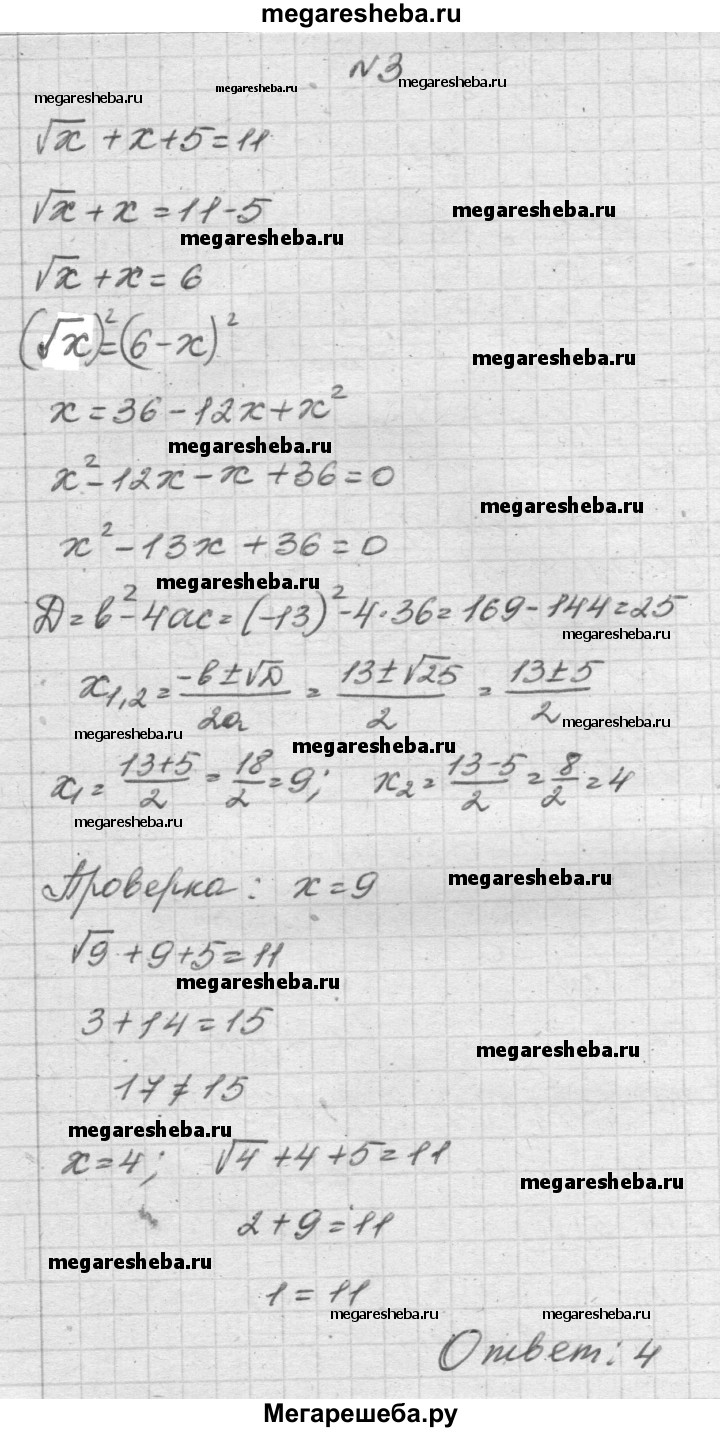 megaresheba.ru
№3
megaresheba.ru megaresheba.ru megaresheba.ru
√x + x + 5 = 11
√x + x = 11 - 5
megaresheba.ru
megaresheba.ru
√x + x = 6
(√x)² = (6 - x)²
megaresheba.ru
x = 36 - 12x + x²
megaresheba.ru
x² - 12x - x + 36 = 0
megaresheba.ru
x² - 13x + 36 = 0
megaresheba.ru
Д = b² - 4ac = (-13)² - 4·36 = 169 - 144 = 25
megaresheba.ru
x₁,₂ = (-b ± √D)/2a = (13 ± √25)/2 = (13 ± 5)/2
megaresheba.ru megaresheba.ru
megaresheba.ru
x₁ = (13+5)/2 = 18/2 = 9; x₂ = (13-5)/2 = 8/2 = 4
megaresheba.ru
Проверка: x = 9
megaresheba.ru
√9 + 9 + 5 = 11
megaresheba.ru
3 + 14 = 15
megaresheba.ru
17 ≠ 15
megaresheba.ru
x = 4; √4 + 4 + 5 = 11
megaresheba.ru
2 + 9 = 11
megaresheba.ru
1 = 11
megaresheba.ru megaresheba.ru
Ответ: 4
Мегарешеба.ру